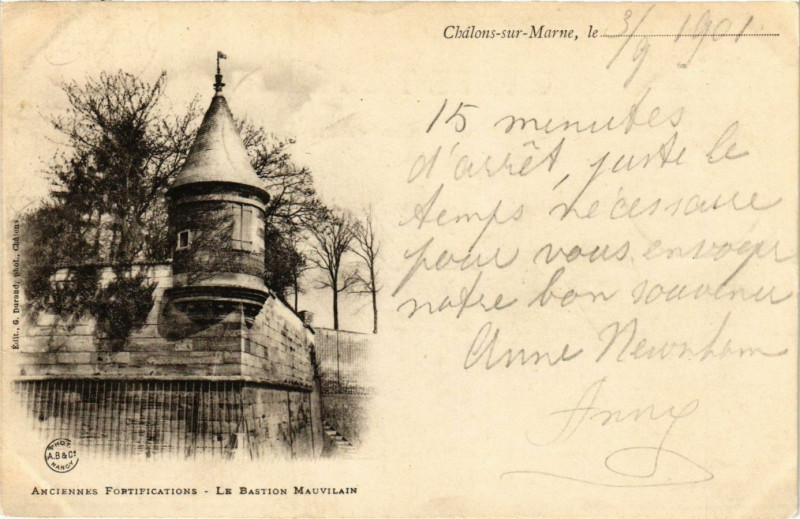 Châlons-sur-Marne, le 3/9 1901.
15 minutes
d'arrêt, juste le
temps nécessaire
pour vous envoyer
notre bon souvenir
Anne Newnham
Anny
Édit., G. Durand, phot., Châlons.
PHOT.
A.B & Cº
NANCY
Anciennes Fortifications - Le Bastion Mauvilain